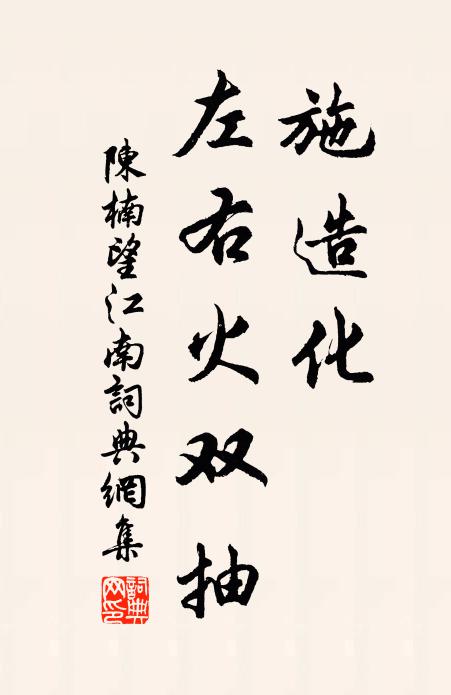 施造化
左右火双抽
陳楠望江南詞典網集
詞典網印